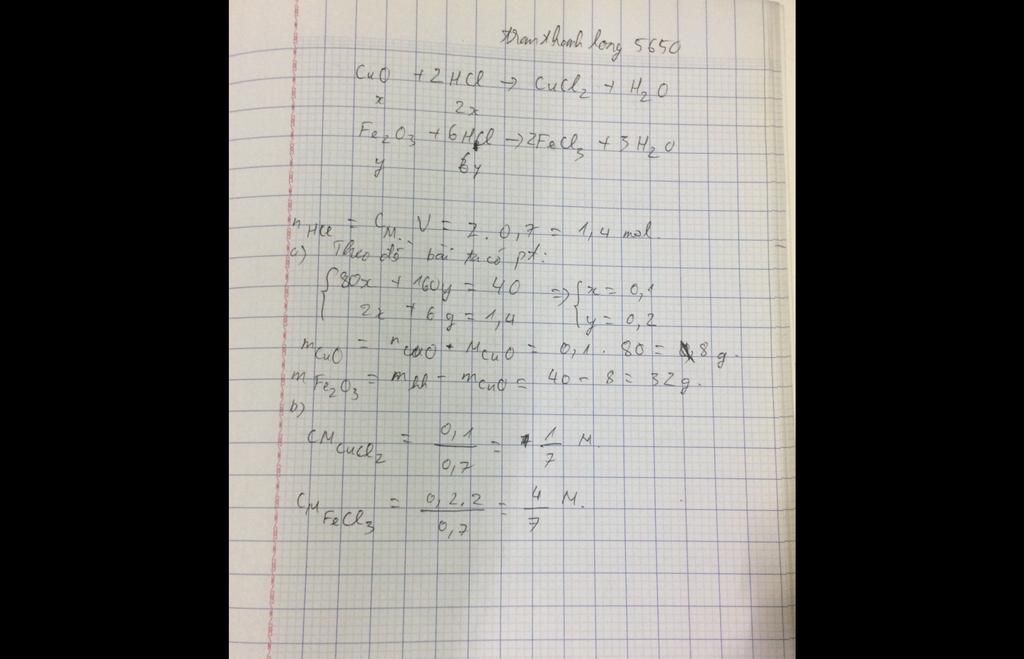 tranthanhlong 5650
CuO + 2HCl → CuCl₂ + H₂O
x 2x
Fe₂O₃ + 6HCl → 2FeCl₃ + 3H₂O
y 6y
nHCl = CM. V = 2. 0,7 = 1,4 mol.
a) Theo đề bài ta có pt:
{ 80x + 160y = 40 => { x = 0,1
2x + 6y = 1,4 y = 0,2
mCuO = nCuO . MCuO = 0,1 . 80 = 8g.
mFe₂O₃ = mhh - mCuO = 40 - 8 = 32g.
b)
CMCuCl₂ = 0,1/0,7 = 1/7 M.
CMFeCl₃ = 0,2.2/0,7 = 4/7 M.